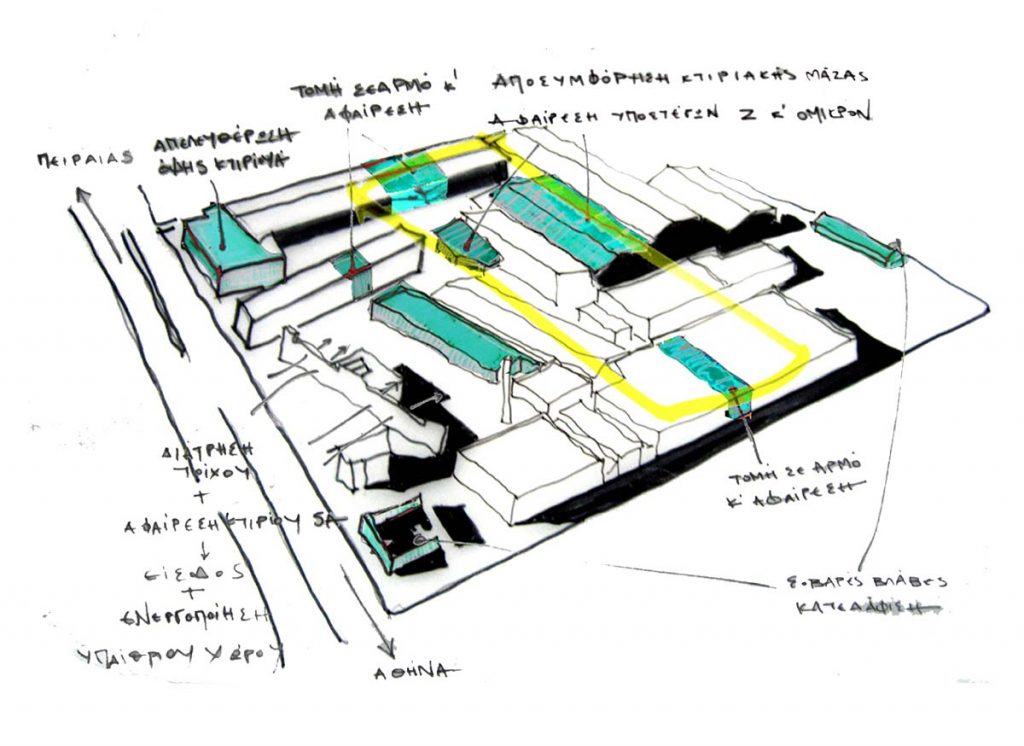 ΤΟΜΗ ΣΕ ΑΡΜΟ Κ'
ΑΦΑΙΡΕΣΗ
ΑΠΟΣΥΜΦΟΡΗΣΗ ΚΤΙΡΙΑΚΗΣ ΜΑΖΑΣ
ΑΦΑΙΡΕΣΗ ΥΠΟΣΤΕΓΩΝ Ζ Κ' ΟΜΙΚΡΟΝ
ΠΕΙΡΑΙΑΣ
ΑΠΕΛΕΥΘΕΡΩΣΗ
ΚΤΙΡΙΟΥ Α
ΔΙΑΤΡΗΣΗ
ΤΟΙΧΟΥ
+
ΑΦΑΙΡΕΣΗ ΚΤΙΡΙΟΥ 5Α
ΕΙΣΟΔΟΣ
+
ΕΝΕΡΓΟΠΟΙΗΣΗ
ΥΠΑΙΘΡΙΟΥ ΧΩΡΟΥ
ΤΟΜΗ ΣΕ ΑΡΜΟ
Κ' ΑΦΑΙΡΕΣΗ
ΣΟΒΑΡΕΣ ΒΛΑΒΕΣ
ΚΑΤΕΔΑΦΙΣΗ
ΑΘΗΝΑ